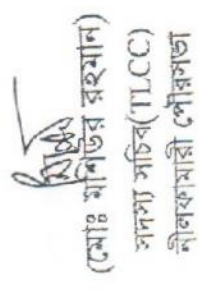 (মোঃ মশিউর রহমান)
সদস্য সচিব(TLCC)
নীলফামারী পৌরসভা